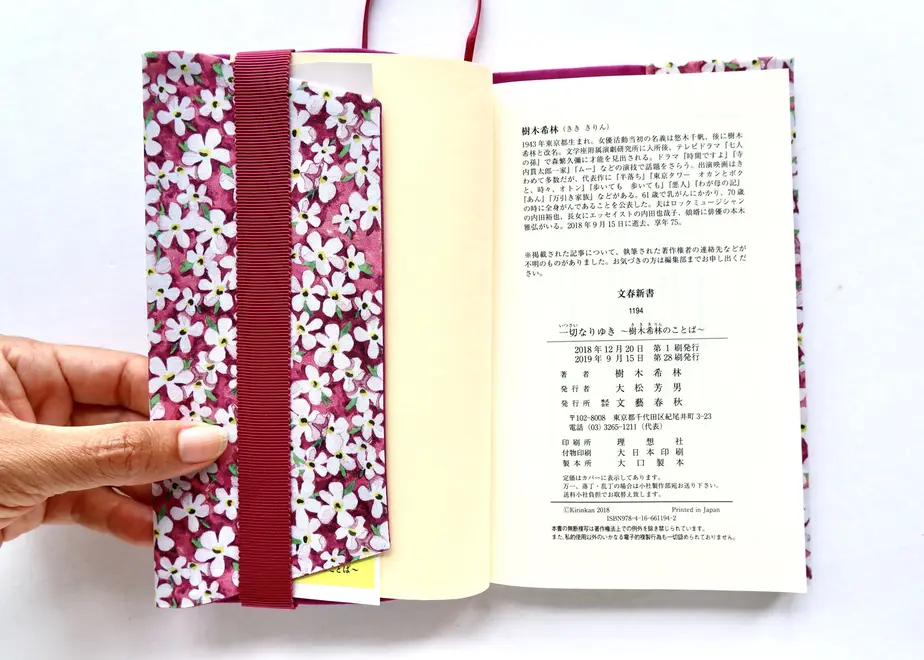 樹木希林（きき きりん）
1943年東京都生まれ。女優活動当初の名義は悠木千帆、後に樹木
希林と改名。文学座附属演劇研究所に入所後、テレビドラマ『七人
の孫』で森繁久彌に才能を見出される。ドラマ『時間ですよ』『寺
内貫太郎一家』『ムー』などの演技で話題をさらう。出演映画はき
わめて多数だが、代表作に『半落ち』『東京タワー オカンとボク
と、時々、オトン』『歩いても 歩いても』『悪人』『わが母の記』
『あん』『万引き家族』などがある。61歳で乳がんにかかり、70歳
の時に全身がんであることを公表した。夫はロックミュージシャン
の内田裕也、長女にエッセイストの内田也哉子、娘婿に俳優の本木
雅弘がいる。2018年9月15日に逝去、享年75。
※掲載された記事について、執筆された著作権者の連絡先などが
不明のものがありました。お気づきの方は編集部までお申し出くだ
さい。
文春新書
1194
いっさい き き き りん
一切なりゆき 〜樹木希林のことば〜
2018年12月20日 第1刷発行
2019年9月15日 第28刷発行
著者 樹木希林
発行者 大松芳男
発行所 株式会社 文藝春秋
〒102-8008 東京都千代田区紀尾井町3-23
電話（03）3265-1211（代表）
印刷所 理想社
付物印刷 大日本印刷
製本所 大口製本
定価はカバーに表示してあります。
万一、落丁・乱丁の場合は小社製作部宛お送り下さい。
送料小社負担でお取替え致します。
©Kirinkan 2018 Printed in Japan
ISBN978-4-16-661194-2
本書の無断複写は著作権法上での例外を除き禁じられています。
また、私的使用以外のいかなる電子的複製行為も一切認められておりません。
ことば〜